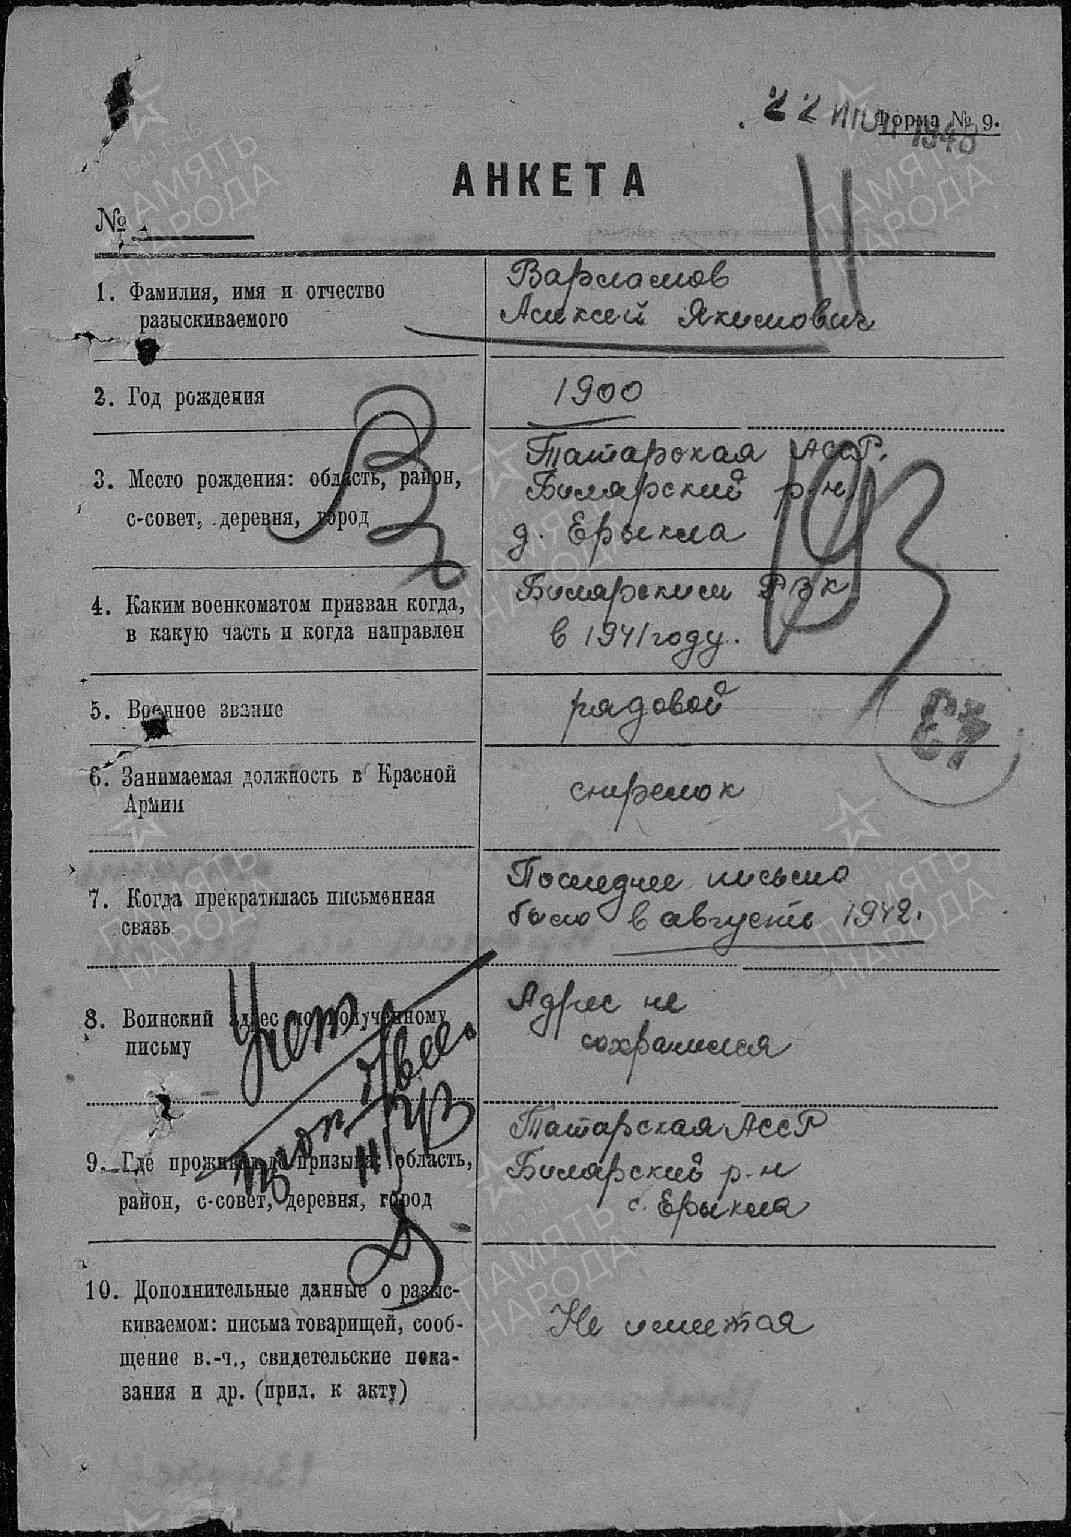 Форма № 9.
22
АНКЕТА
№
1. Фамилия, имя и отчество
разыскиваемого
Варламов
Алексей Якимович
2. Год рождения
1900
3. Место рождения: область, район,
с-совет, деревня, город
Татарская АССР.
Билярский р-н
д. Ерыкла
4. Каким военкоматом призван когда,
в какую часть и когда направлен
Билярским РВК
в 1941 году.
5. Военное звание
рядовой
43
6. Занимаемая должность в Красной
Армии
стрелок
7. Когда прекратилась письменная
связь
Последнее письмо
было в августе 1942.
8. Воинский адрес по полученному
письму
Адрес не
сохранился
9. Где проживал до призыва: область,
район, с-совет, деревня, город
Татарская АССР
Билярский р-н
с. Ерыкла
10. Дополнительные данные о разыс-
киваемом: письма товарищей, сооб-
щение в.-ч., свидетельские пока-
зания и др. (прил. к акту)
Не имется
ПАМЯТЬ
НАРОДА
ПАМЯТЬ
НАРОДА
ПАМЯТЬ
НАРОДА
ПАМЯТЬ
НАРОДА
ПАМЯТЬ
НАРОДА
ПАМЯТЬ
НАРОДА